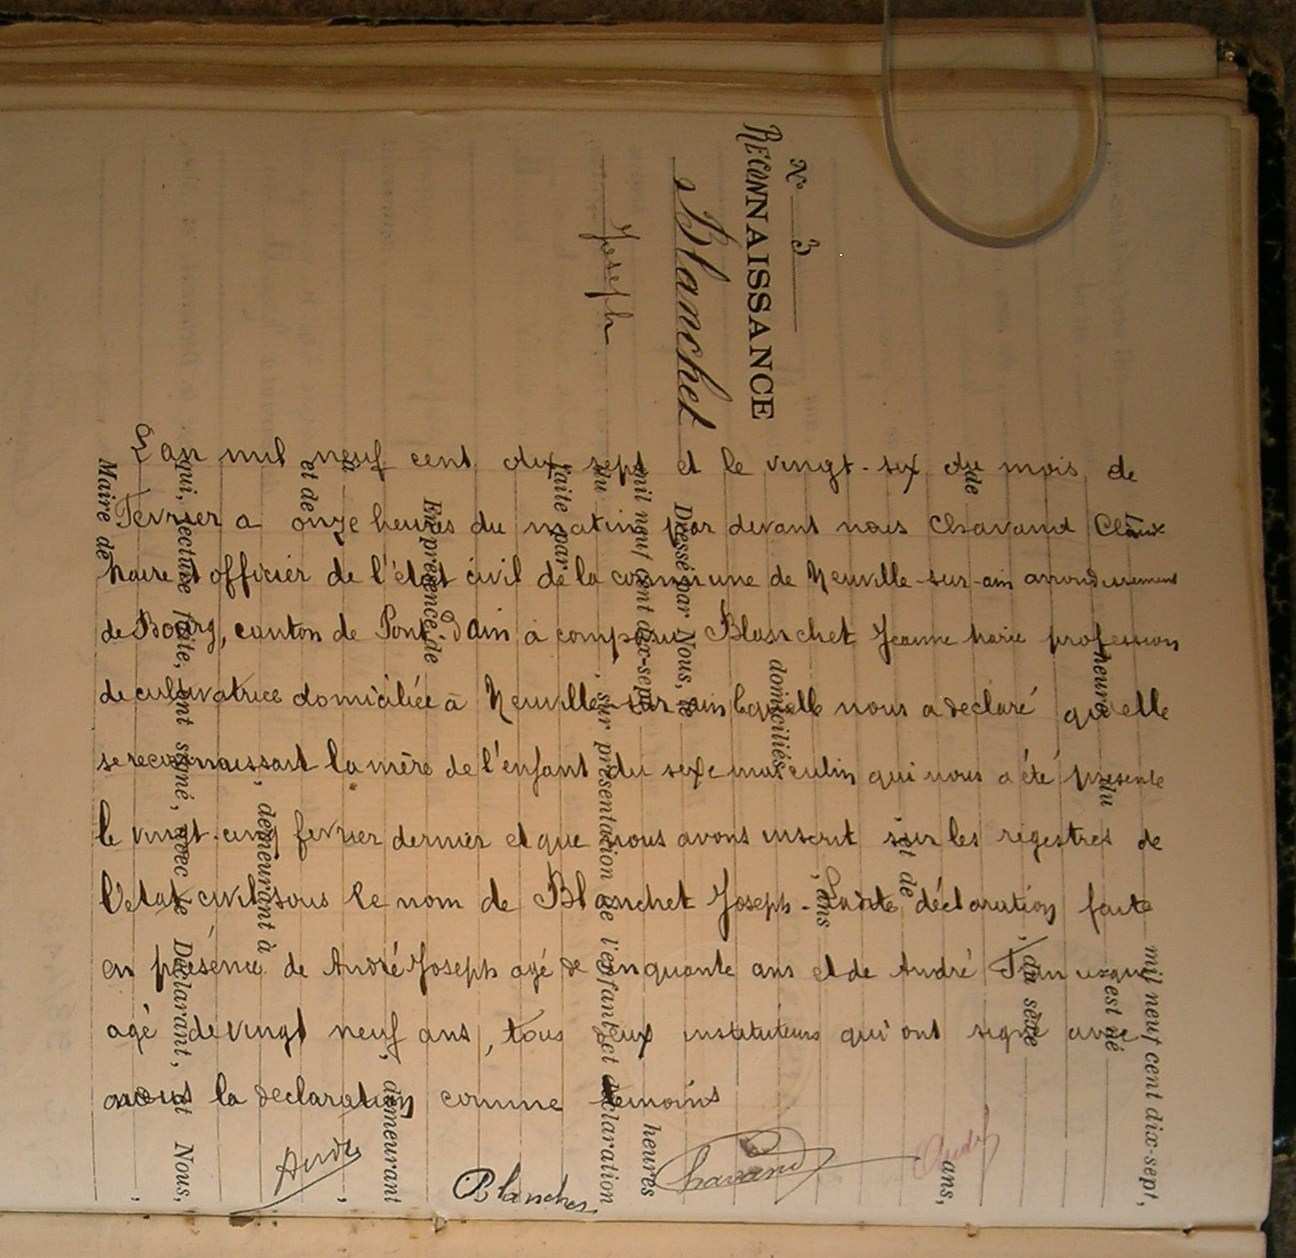 N° 3
RECONNAISSANCE
Blanchet
Joseph
L'an mil neuf cent dix sept et le vingt-six du mois de
Fevrier a onze heures du matin par devant nous Chavand
Maire et officier de l'etat civil de la commune de Neuville-sur-ain arrondissement
de Bourg, canton de Pont d'ain a comparu Blanchet Jeanne Marie profession
de cultivatrice domiciliée à Neuville-sur-ain laquelle nous a declaré qu'elle
se reconnaissait la mère de l'enfant du sexe masculin qui nous a été presenté
le vingt-cinq fevrier dernier et que nous avons inscrit sur les regestres de
l'etat civil sous le nom de Blanchet Joseph - Ladite déclaration faite
en présence de André Joseph agé de cinquante ans et de André
agé de vingt neuf ans, tous deux instituteurs qui ont signé avec
nous la declaration comme temoins
André
Blanchet
Chavand
André
mil neuf cent dix-sept,
heure du est né
de , du sexe
ans,
et de
, ans
domiciliés
Dressé par Nous, le
mil neuf cent dix-sept heures
du , sur présentation de l'enfant et déclaration
faite par
En présence de
, demeurant
à ,
et de
, demeurant à
qui, lecture faite, ont signé, avec le Déclarant, et Nous,
Maire de ,